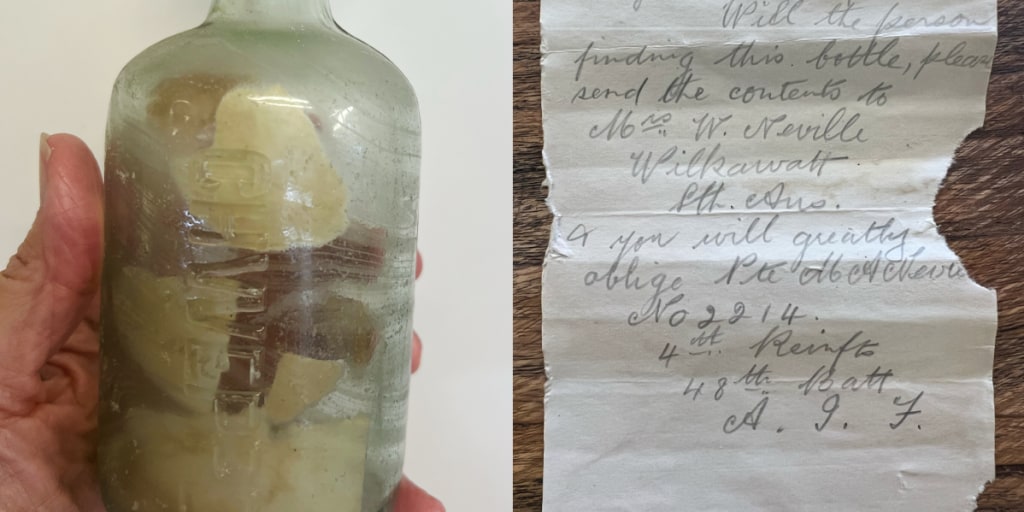 Will the person
finding this bottle, pleas
send the contents to
Mrs W. Neville
Wilkawatt
Sth. Aus.
& you will greatly
oblige Pte M A Nevil
No 2214.
4th Reinfts
48th Batt
A. I. F.